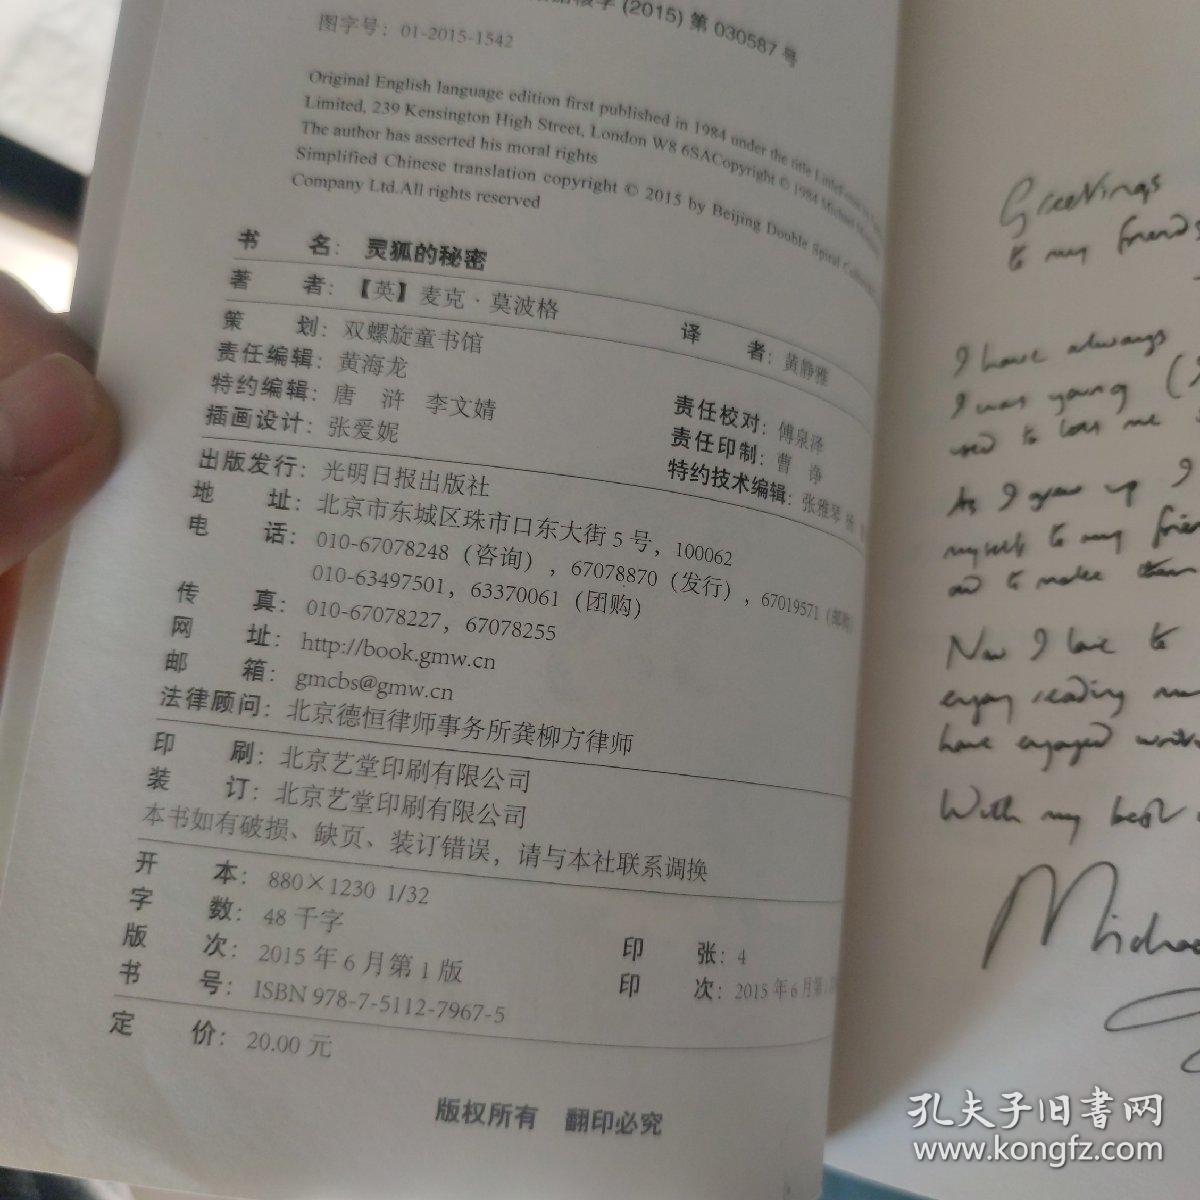 (2015) 第 030587 号
图字号：01-2015-1542
Original English language edition first published in 1984 under the title
Limited, 239 Kensington High Street, London W8 6SACopyright © 1984 Michael
The author has asserted his moral rights
Simplified Chinese translation copyright © 2015 by Beijing Double Spiral
Company Ltd.All rights reserved
书 名：灵狐的秘密
著 者：【英】麦克·莫波格 译 者：黄静雅
策 划：双螺旋童书馆
责任编辑：黄海龙 责任校对：傅泉泽
特约编辑：唐 浒 李文婧 责任印制：曹 诤
插画设计：张爱妮 特约技术编辑：张雅琴 杨
出版发行：光明日报出版社
地 址：北京市东城区珠市口东大街 5 号，100062
电 话：010-67078248（咨询），67078870（发行），67019571（邮购）
010-63497501，63370061（团购）
传 真：010-67078227，67078255
网 址：http://book.gmw.cn
邮 箱：gmcbs@gmw.cn
法律顾问：北京德恒律师事务所龚柳方律师
印 刷：北京艺堂印刷有限公司
装 订：北京艺堂印刷有限公司
本书如有破损、缺页、装订错误，请与本社联系调换
开 本：880×1230 1/32
字 数：48 千字 印 张：4
版 次：2015 年 6 月第 1 版 印 次：2015 年 6 月第 1
书 号：ISBN 978-7-5112-7967-5
定 价：20.00 元
版权所有 翻印必究
Greetings
to my friends
I have always
I was young (
used to
As I grew up I
myself to my friends
and to make them
Now I love to
enjoy reading
have enjoyed writing
With my best
Michael
孔夫子旧书网
www.kongfz.com